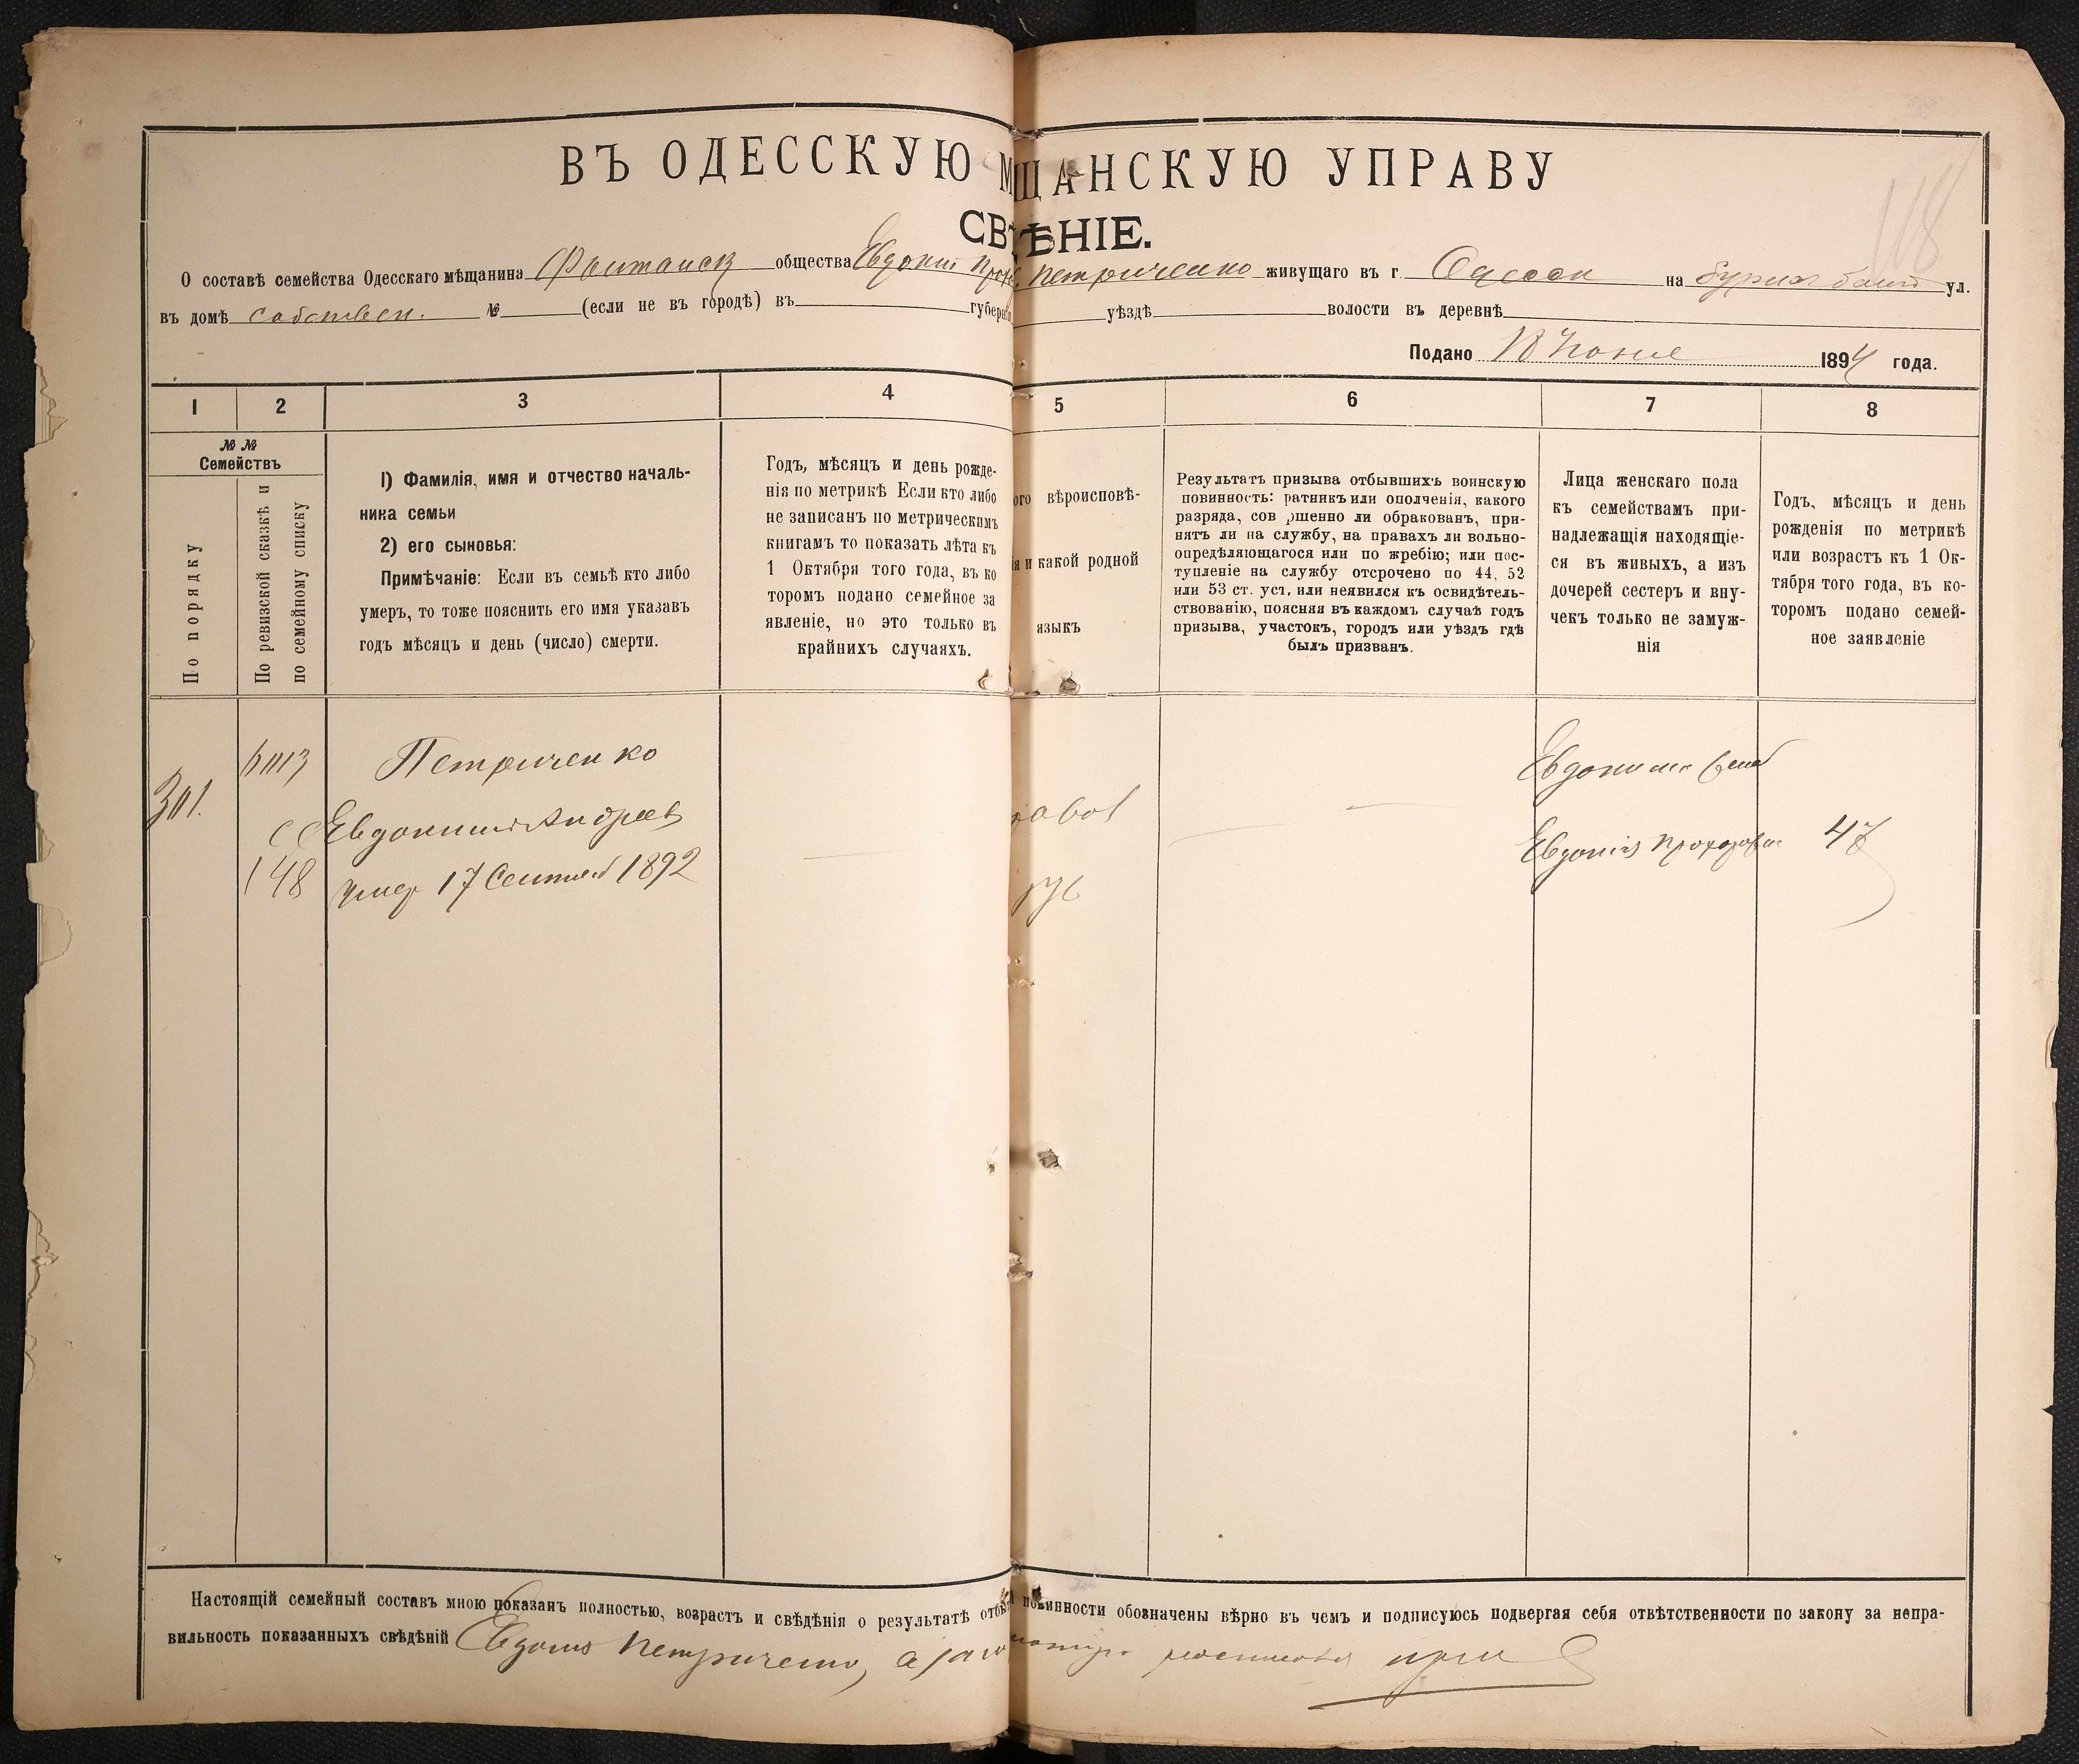 ВЪ ОДЕССКУЮ М ЩАНСКУЮ УПРАВУ
СВ ѢНІЕ.
118
О составѣ семейства Одесскаго мѣщанина Фонтанск общества Евдокіи Прох. Петриченко живущаго въ г Одессе на ул.
въ домѣ собствен. № (если не въ городѣ) въ губерн уѣздѣ волости въ деревнѣ
Подано 18 Іюня 1894 года.
1 2 3 4 5 6 7 8
№ №
Семействъ
По порядку
По ревизской сказкѣ и
по семейному списку
1) Фамилія, имя и отчество началь-
ника семьи
2) его сыновья:
Примѣчаніе: Если въ семьѣ кто либо
умеръ, то тоже пояснить его имя указавъ
годъ мѣсяцъ и день (число) смерти.
Годъ, мѣсяцъ и день рожде-
нія по метрикѣ Если кто либо
не записанъ по метрическимъ
книгамъ то показать лѣта къ
1 Октября того года, въ ко
торомъ подано семейное за
явленіе, но это только въ
крайнихъ случаяхъ.
ого вѣроисповѣ-
ія и какой родной
языкъ
Результатъ призыва отбывшихъ воинскую
повинность: ратникъ или ополченія, какого
разряда, сов ршенно ли обракованъ, при-
нятъ ли на службу, на правахъ ли вольно-
опредѣляющагося или по жребію; или пос-
тупленіе на службу отсрочено по 44, 52
или 53 ст. уст. или неявился къ освидѣтель-
ствованію, поясняя въ каждомъ случаѣ годъ
призыва, участокъ, городъ или уѣздъ гдѣ
былъ призванъ.
Лица женскаго пола
къ семействамъ при-
надлежащія находящіе-
ся въ живыхъ, а изъ
дочерей сестеръ и вну-
чекъ только не замуж-
нія
Годъ, мѣсяцъ и день
рожденія по метрикѣ
или возрастъ къ 1 Ок-
тября того года, въ ко-
торомъ подано семей-
ное заявленіе
301.
148
Петриченко
Евдокимъ Андреев
умер 17 Сентяб 1892
равос
рус
Евдокима жена
Евдокія Прохоровна 47
Настоящій семейный составъ мною показанъ полностью, возрастъ и свѣдѣнія о результатѣ отбы повинности обозначены вѣрно въ чемъ и подписуюсь подвергая себя отвѣтственности по закону за непра-
вильность показанныхъ свѣдѣній Евдокія Петриченко, а за